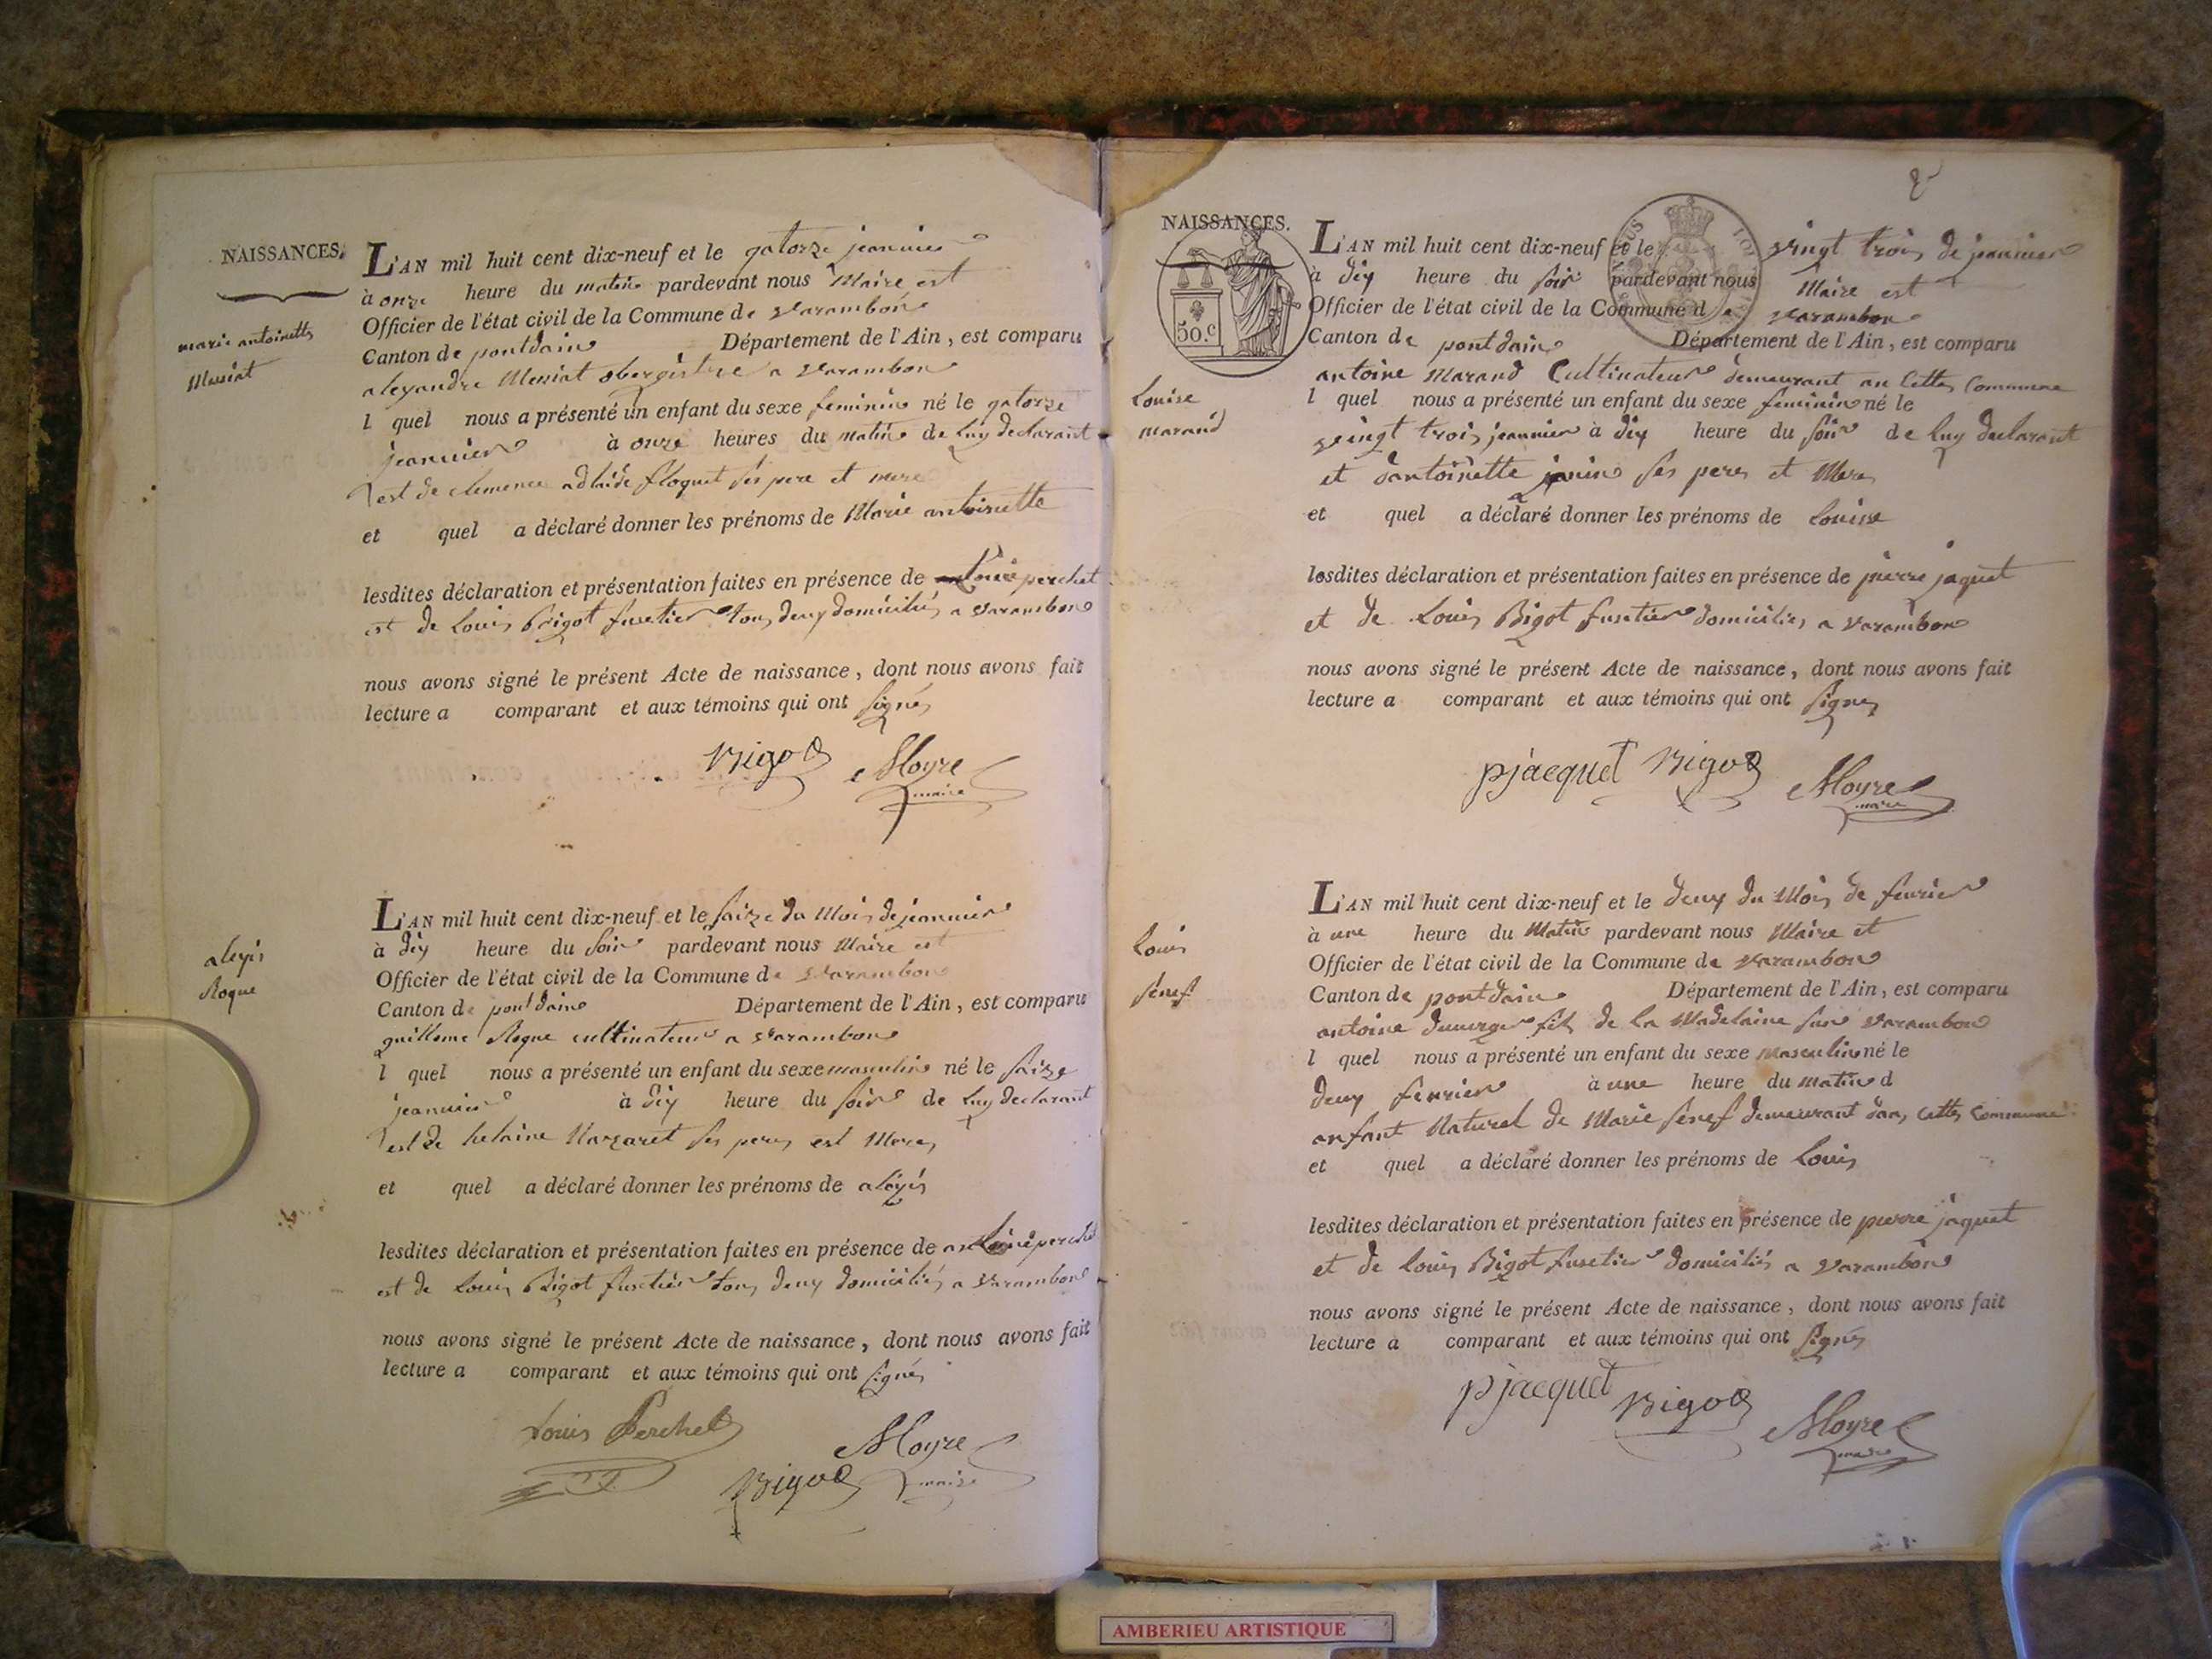 NAISSANCES.
marie antoinette
Messiat
L'AN mil huit cent dix-neuf et le qatorze jeanvier
à onze heure du matin pardevant nous Maire est
Officier de l'état civil de la Commune de varambon
Canton de pontdain Département de l'Ain, est comparu
alexandre Messiat obergistre a varambon
l quel nous a présenté un enfant du sexe feminin né le qatorze
jeanvier à onze heures du matin de luy declarant
est de clemence adlaide floquet ses pere et mere
et quel a déclaré donner les prénoms de Marie antoinette
lesdites déclaration et présentation faites en présence de Louis perchet
est de Louis Bigot fusetier tous deux domiciliés a varambon
nous avons signé le présent Acte de naissance, dont nous avons fait
lecture a comparant et aux témoins qui ont signés
Bigot Moyre
maire
alexis
Roque
L'AN mil huit cent dix-neuf et le saize du Mois de jeanvier
à dix heure du soir pardevant nous Maire est
Officier de l'état civil de la Commune de varambon
Canton de pontdain Département de l'Ain, est comparu
guilleme Roque cultivateur a varambon
l quel nous a présenté un enfant du sexe masculin né le saize
jeanvier à dix heure du soir de luy declarant
est de helaine Margaret ses peres est Meres
et quel a déclaré donner les prénoms de alexis
lesdites déclaration et présentation faites en présence de perchet
est de Louis Bigot fusetier tous deux domiciliés a varambon
nous avons signé le présent Acte de naissance, dont nous avons fait
lecture a comparant et aux témoins qui ont signés
Louis Perchet
Moyre
Bigot maire
2
NAISSANCES.
50.c
Louise
marand
L'AN mil huit cent dix-neuf et le vingt trois de jeanvier
à dix heure du soir pardevant nous Maire est
Officier de l'état civil de la Commune de varambon
Canton de pontdain Département de l'Ain, est comparu
antoine Marand Cultivateur demeurant an cettes Commune
l quel nous a présenté un enfant du sexe feminin né le
vingt trois jeanvier à dix heure du soir de luy declarant
et dantoinette janin ses peres et Meres
et quel a déclaré donner les prénoms de Louise
lesdites déclaration et présentation faites en présence de pierre jaquet
et de Louis Bigot fusetier domiciliés a varambon
nous avons signé le présent Acte de naissance, dont nous avons fait
lecture a comparant et aux témoins qui ont signés
pjacquet Bigot Moyre
maire
Louis
senef
L'AN mil huit cent dix-neuf et le deux du Mois de fevrier
à une heure du Matin pardevant nous Maire et
Officier de l'état civil de la Commune de varambon
Canton de pontdain Département de l'Ain, est comparu
antoine duverger fils de la Madelaine sur varambon
l quel nous a présenté un enfant du sexe masculin né le
deux fevrier à une heure du matin d
anfant Naturel de Marie senef demeurant dans cettes Commune
et quel a déclaré donner les prénoms de Louis
lesdites déclaration et présentation faites en présence de pierre jaquet
et de Louis Bigot fusetier domiciliés a varambon
nous avons signé le présent Acte de naissance, dont nous avons fait
lecture a comparant et aux témoins qui ont signés
pjacquet Bigot Moyre
maire
AMBERIEU ARTISTIQUE